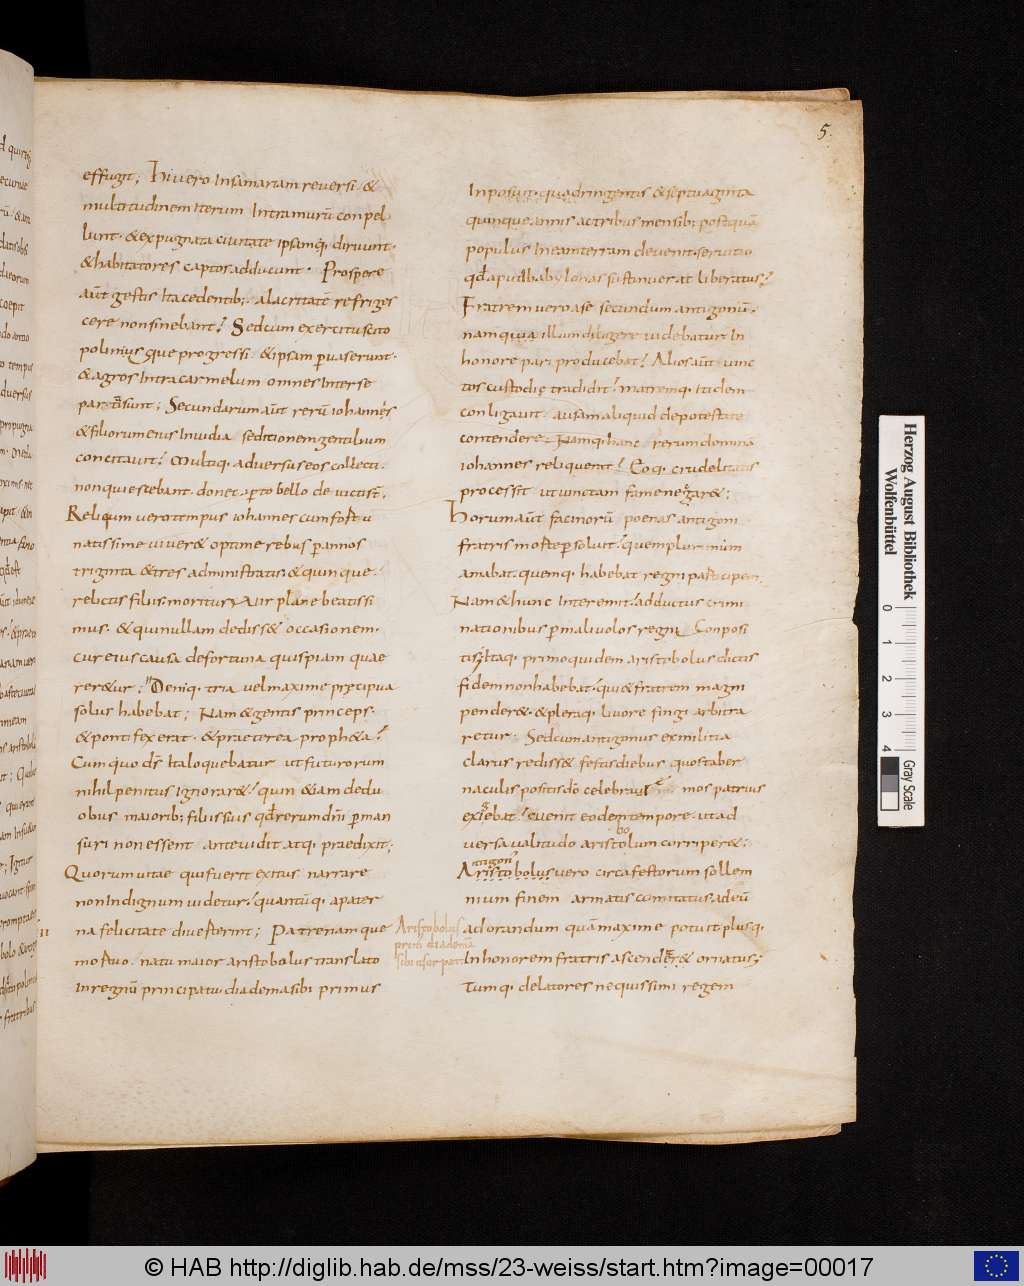 5.
effugit; hi vero Insamariam reversi · &
multitudinem Iterum Intramurū conpel
lunt · & expugnata civitate ipsamq; diruunt ·
& habitatores captos adducunt · Prospere
aūt gestis Ita cedentib; · alacritatē refriges
cere non sinebant? Sed cum exercitu scito
polinius que progressi · & ipsam puaserunt ·
& agros Intra carmelum omnes Inter se
partiti sunt; Secundarum aūt rerū iohannis
& filiorum eius Invidia seditionem gentilium
concitavit? Multiq; adversus eos collecti ·
non quiescebant · donec apto bello de victi st̄ ·
Reliqum vero tempus iohannes cum fortu
natissime viver& optime rebus p annos
triginta & tres administratis · & quinque ·
relictis filiis moritur Vir plane beatissi
mus · & qui nullam dediss& occasionem ·
cur eius causa de fortuna quispiam quae
rer&ur; Deniq; tria vel maxime precipua
solus habebat; Nam & gentis princeps ·
& pontifex erat · & praeterea proph&a?
Cum quo ds̄ Ita loquebatur ut futurorum
nihil penitus Ignorar&? quin &iam de du
obus maiorib; filiis suis qd̄ rerum dn̄i p man
suri non essent ante vidit atq; praedixit;
Quorum vitae qui fuerit exitus narrare
non Indignum videtur? quantūq; a pater
II
na felicitate diverterint; Patre namque
mortuo · natu maior aristobolus translato
In regnū principatu · diadema sibi primus
Aristobolus
primū diadema
sibi usurpat
Inposuit · quadringentis & septuaginta
quinque annis ac tribus mensib; postquā
populus In eam terram devenit · servitio
qd̄ apud babylonas sustinuerat liberatus?
Fratrem vero a se secundum antigonū ·
nam quia illum diligere videbatur · In
honore pari producebat? Alios aūt vinc
tos custodię tradidit? matremq; Itidem
conligavit · ausam aliquid de potestate
contendere · Namq; hanc rerum domina
iohannes reliquerit? Eoq; crudelitatis
processit ut vinctam fame negar&;
horum aūt facinorū poenas antigoni
fratris morte psolvit? quem plurimum
amabat · quemq; habebat regni participem ·
Nam & hunc Interemit? adductus crimi
nationibus p malivolos regni Conposi
tis; Itaq; primo quidem aristobolus dictis
fidem non habebat? qui & fratrem magni
pender& · & pleraq; livore fingi arbitra
retur · Sed cum antigonus ex militia
clarus rediss& festis diebus quos taber
naculis positis dō celebrari mos patrius
exigebat? evenit eodem tempore · ut ad
versa valitudo aristobolum corriper&;
antigon'
Aristobolus vero circa festorum sollem
nium finem armatis comitatus · ad eū
ad orandum quā maxime potuit plusq;
In honorem fratris ascender& ornatus;
Tumq; delatores nequissimi regem
Herzog August Bibliothek
Wolfenbüttel
0 1 2 3 4
Gray Scale
© HAB http://diglib.hab.de/mss/23-weiss/start.htm?image=00017